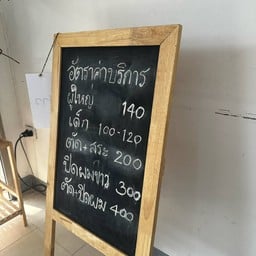 อัตราค่าบริการ
ผู้ใหญ่ 140
เด็ก 100-120
ตัด+สระ 200
ปิดผมขาว 300
ตัด+ปิดผม 400